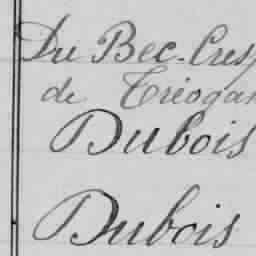 Du Bec-Cres
de Tréogan
Dubois
Dubois